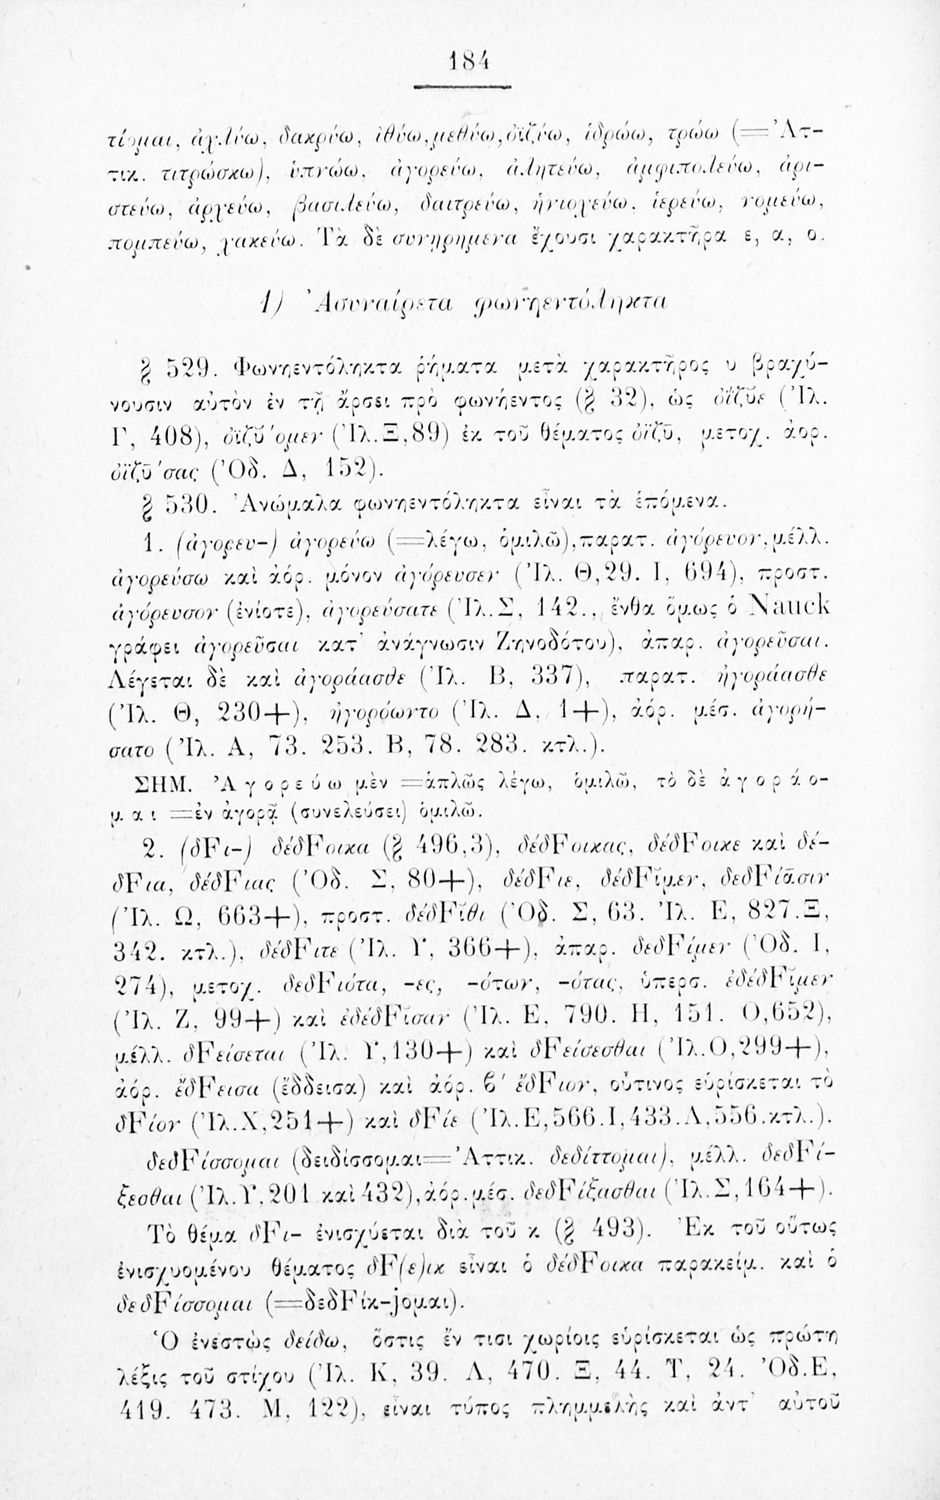 184
τίομαι, ἀχλύω, δακρύω, ἰθύω, μεθύω, ὀϊζύω, ἱδρώω, τρώω (=Ἀτ-
τικ. τιτρώσκω), ὑπνώω, ἀγορεύω, ἀλητεύω, ἀμφιπολεύω, ἀρι-
στεύω, ἀρχεύω, βασιλεύω, δαιτρεύω, ἡνιοχεύω, ἱερεύω, νομεύω,
πομπεύω, χακεύω. Τὰ δὲ συνῃρημένα ἔχουσι χαρακτῆρα ε, α, ο.
1) Ἀσυναίρετα φωνηεντόληκτα
§ 529. Φωνηεντόληκτα ῥήματα μετὰ χαρακτῆρος υ βραχύ-
νουσιν αὐτὸν ἐν τῇ ἄρσει πρὸ φωνήεντος (§ 32), ὡς ὀΐζῠε (Ἰλ.
Γ, 408), ὀϊζῡ́ομεν (Ἰλ. Ξ, 89) ἐκ τοῦ θέματος ὀϊζῡ, μετοχ. ἀορ.
ὀϊζῡ́σας (Ὀδ. Δ, 152).
§ 530. Ἀνώμαλα φωνηεντόληκτα εἶναι τὰ ἑπόμενα.
1. (ἀγορευ-) ἀγορεύω (=λέγω, ὁμιλῶ), παρατ. ἀγόρευον, μέλλ.
ἀγορεύσω καὶ ἀόρ. μόνον ἀγόρευσεν (Ἰλ. Θ, 29. Ι, 694), προστ.
ἀγόρευσον (ἐνίοτε), ἀγορεύσατε (Ἰλ. Σ, 142., ἔνθα ὅμως ὁ Nauck
γράφει ἀγορεῦσαι κατ' ἀνάγνωσιν Ζηνοδότου), ἀπαρ. ἀγορεῦσαι.
Λέγεται δὲ καὶ ἀγοράασθε (Ἰλ. Β, 337), παρατ. ἠγοράασθε
(Ἰλ. Θ, 230+), ἠγορόωντο (Ἰλ. Δ, 1+), ἀόρ. μέσ. ἀγορή-
σατο (Ἰλ. Α, 73. 253. Β, 78. 283. κτλ.).
ΣΗΜ. Ἀγορεύω μὲν =ἁπλῶς λέγω, ὁμιλῶ, τὸ δὲ ἀγοράο-
μαι =ἐν ἀγορᾷ (συνελεύσει) ὁμιλῶ.
2. (δFι-) δέδFοικα (§ 496,3), δέδFοικας, δέδFοικε καὶ δέ-
δFια, δέδFιας (Ὀδ. Σ, 80+), δέδFιε, δέδFῐμεν, δεδFίᾱσιν
(Ἰλ. Ω, 663+), προστ. δέδFῐθι (Ὀδ. Σ, 63. Ἰλ. Ε, 827. Ξ,
342. κτλ.), δέδFιτε (Ἰλ. Υ, 366+), ἀπαρ. δεδFίμεν (Ὀδ. Ι,
274), μετοχ. δεδFιότα, -ες, -ότων, -ότας, ὑπερσ. ἐδέδFῐμεν
(Ἰλ. Ζ, 99+) καὶ ἐδέδFῐσαν (Ἰλ. Ε, 790. Η, 151. Ο, 652),
μέλλ. δFείσεται (Ἰλ. Υ, 130+) καὶ δFείσεσθαι (Ἰλ. Ο, 299+),
ἀόρ. ἔδFεισα (ἔδδεισα) καὶ ἀόρ. β' ἔδFιον, οὗτινος εὑρίσκεται τὸ
δFίον (Ἰλ. Χ, 251+) καὶ δFίε (Ἰλ. Ε, 566. Ι, 433. Λ, 556. κτλ.).
δεδFίσσομαι (δειδίσσομαι=Ἀττικ. δεδίττομαι), μέλλ. δεδFί-
ξεσθαι (Ἰλ. Υ. 201 καὶ 432), ἀόρ. μέσ. δεδFίξασθαι (Ἰλ. Σ, 164+).
Τὸ θέμα δFι- ἐνισχύεται διὰ τοῦ κ (§ 493). Ἐκ τοῦ οὕτως
ἐνισχυομένου θέματος δF(ε)ικ εἶναι ὁ δέδFοικα παρακείμ. καὶ ὁ
δεδFίσσομαι (=δεδFίκ-jομαι).
Ὁ ἐνεστὼς δείδω, ὅστις ἔν τισι χωρίοις εὑρίσκεται ὡς πρώτη
λέξις τοῦ στίχου (Ἰλ. Κ, 39. Λ, 470. Ξ, 44. Τ, 24. Ὀδ. Ε,
419. 473. Μ, 122), εἶναι τύπος πλημμελὴς καὶ ἀντ' αὐτοῦ